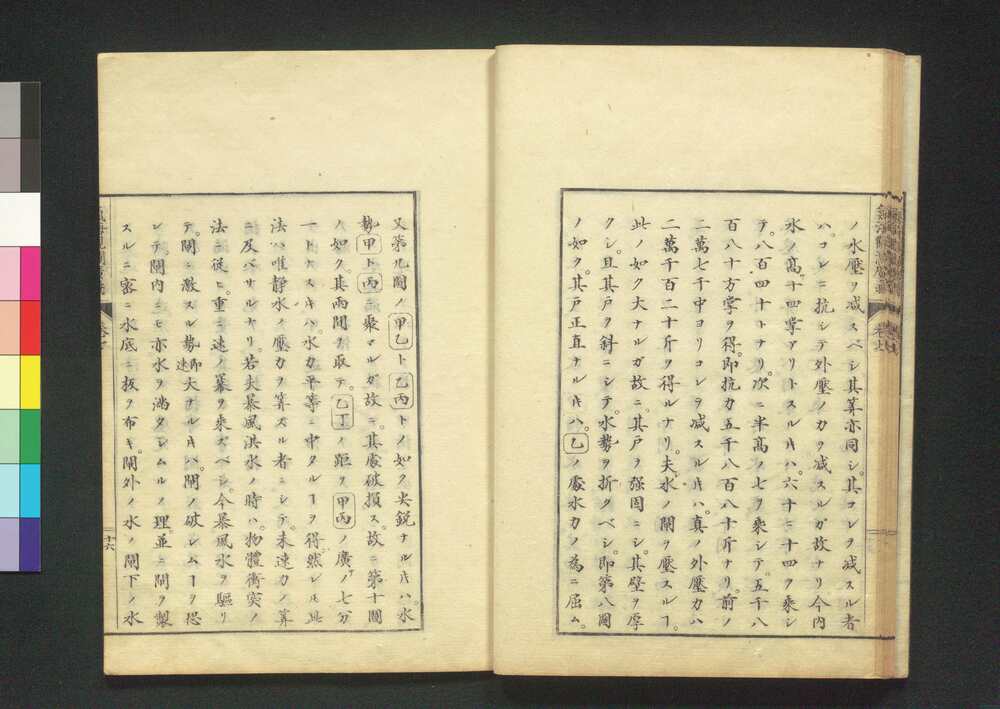 ノ水壓ヲ減スベシ其算亦同シ。其コレヲ減スル者
ハ。コレニ抗シテ外壓ノ力ヲ減スルガ故ナリ今内
水ノ高。十四掌アリトスル𪜈ハ。六十ニ十四ヲ乘シ
テ。八百四十トナリ。次ニ半高ノ七ヲ乘シテ。五千八
百八十方掌ヲ得。即抗力五千八百八十斤ナリ。前ノ
二萬七千中ヨリコレヲ減スル𪜈ハ。真ノ外壓力ハ
二萬千百二十斤ヲ得ルナリ。夫水ノ閘ヲ壓スルヿ。
此ノ如ク大ナルガ故ニ。其戸ヲ强固ニシ。其壁ヲ厚
クシ。且其戸ヲ斜ニシテ。水勢ヲ折クベシ。即第八圖
ノ如ク。其戸正直ナル𪜈ハ。乙ノ處水力ノ為ニ屈ム。
又第九圖ノ甲乙ト乙丙トノ如ク尖鋭ナル𪜈ハ。水
勢甲ト丙ニ聚マルガ故ニ。其處破損ス。故ニ第十圖
ノ如ク。其兩間ヲ取テ。乙丁ノ距ヲ甲丙ノ廣ノ七分
一トナス𪜈ハ。水力平等ニ中タルヿヲ得。然レ𪜈此
法ハ唯静水ノ壓力ヲ算スル者ニシテ。未速力ノ算
ニ及バザルナリ。若夫暴風洪水ノ時ハ。物體衝突ノ
法ニ従ヒ。重ニ速ノ冪ヲ乘ズベシ。今暴風水ヲ驅リ
テ。閘ニ激スル勢即速大ナル𪜈ハ。閘ノ破レムヿヲ恐
レテ。閘内ニモ亦水ヲ満タシムルノ理。並ニ閘ヲ製
スルニ審ニ水底ニ板ヲ布キ。閘外ノ水ノ閘下ノ水
十六